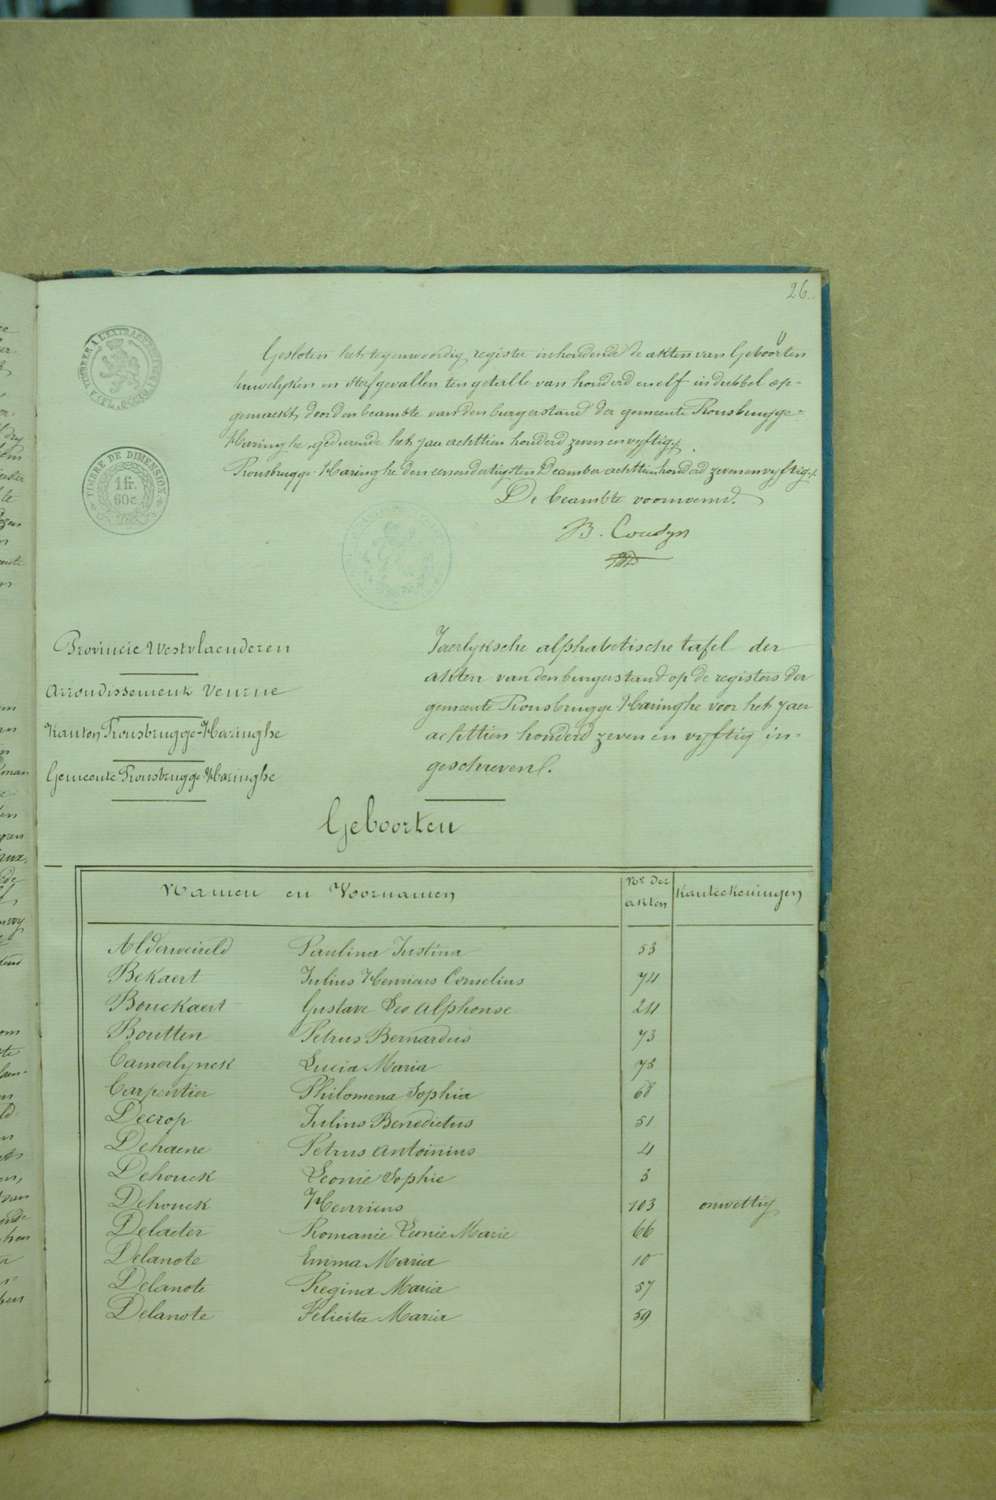 26.
Gesloten het tegenwoordig register inhoudende de akten van Geboorten
huwelyken en sterfgevallen ten getalle van honderd en elf in dubbel op-
gemaekt door den beambte van den burgerstand der gemeente Rousbrugge-
Haringhe gedurende het jaer achttien honderd zeven en vyftig.
Rousbrugge-Haringhe den eenendertigsten December achttienhonderd zevenenvyftig.
De beambte voornoemd.
B. Coudyn
TIMBRE DE DIMENSION
1 fr.
60 c.
Provincie Westvlaenderen
Arrondissement Veurne
Kanton Rousbrugge-Haringhe
Gemeente Rousbrugge Haringhe
Jaerlyksche alphabetische tafel der
akten van den burgerstand op de registers der
gemeente Rousbrugge Haringhe voor het jaer
achttien honderd zeven en vyftig in-
geschreven.
Geboorten
Namen en Voornamen Nr der akten Kanteekeningen
Alderweireld Paulina Justina 53
Bekaert Julius Henricus Cornelius 74
Bouckaert Gustave Leo Alphonse 24
Boutten Petrus Bernardus 73
Camerlynck Lucia Maria 75
Carpentier Philomena Sophia 68
Decrop Julius Benedictus 51
Dehaene Petrus Antoinius 4
Dehouck Leonie Sophie 3
Dehouck Henricus 103 onwettig
Delaeter Romanie Leonie Marie 66
Delanote Emma Maria 10
Delanote Regina Maria 57
Delanote Felicita Maria 59